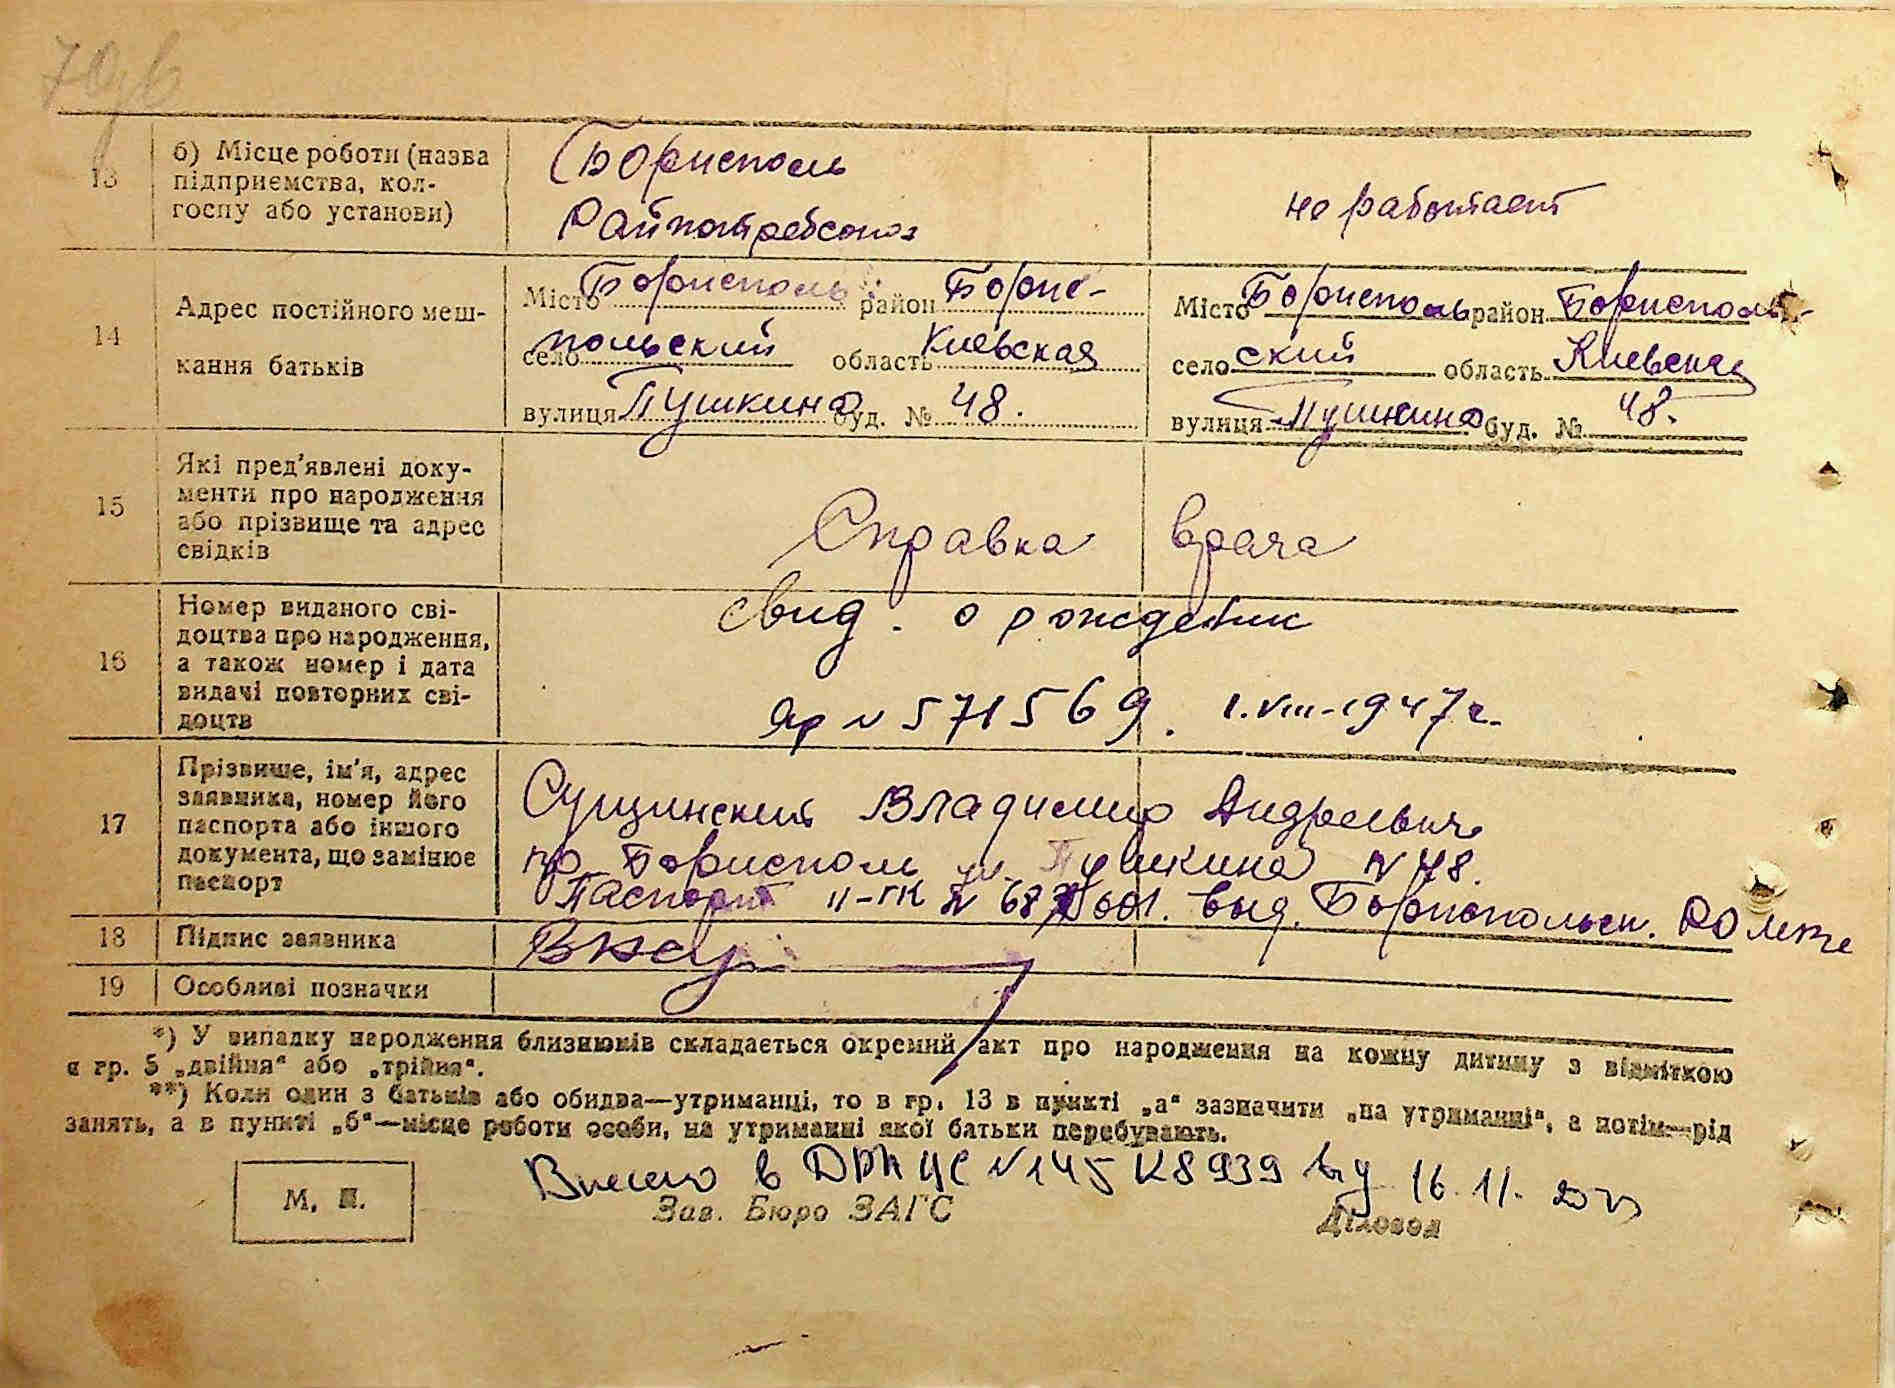 13 б) Місце роботи (назва підприємства, кол-госпу або установи)
Борисполь
Райпотребсоюз
не работает
14 Адрес постійного меш-
кання батьків
Місто Борисполь район Борис-
село польский область Киевская
вулиця Пушкина буд. № 48.
Місто Борисполь район Бориспольс-
село ский область Киевская
вулиця Пушкина буд. № 48.
15 Які пред'явлені доку-
менти про народження
або прізвище та адрес
свідків
Справка врача
16 Номер виданого сві-
доцтва про народження,
а також номер і дата
видачі повторних сві-
доцтв
свид. о рождении
N 571569. 1.VIII-1947 г.
17 Прізвище, ім'я, адрес
заявника, номер його
паспорта або іншого
документа, що замінює
паспорт
Сущинский Владимир Андреевич
гр Борисполь ул. Пушкина N 48.
Паспорт II-ГК N выд. Бориспольск. РО
18 Підпис заявника
19 Особливі позначки
*) У випадку народження близнюків складається окремий акт про народження на кожну дитину з відміткою
в гр. 5 „двійня“ або „трійня“.
**) Коли один з батьків або обидва—утриманці, то в гр. 13 в пункті „а“ зазначити „на утриманні“, а потім—рід
занять, а в пункті „б“—місце роботи особи, на утриманні якої батьки перебувають.
Внесено в N 145 від 16.11.
М. П.
Зав. Бюро ЗАГС
Діловод